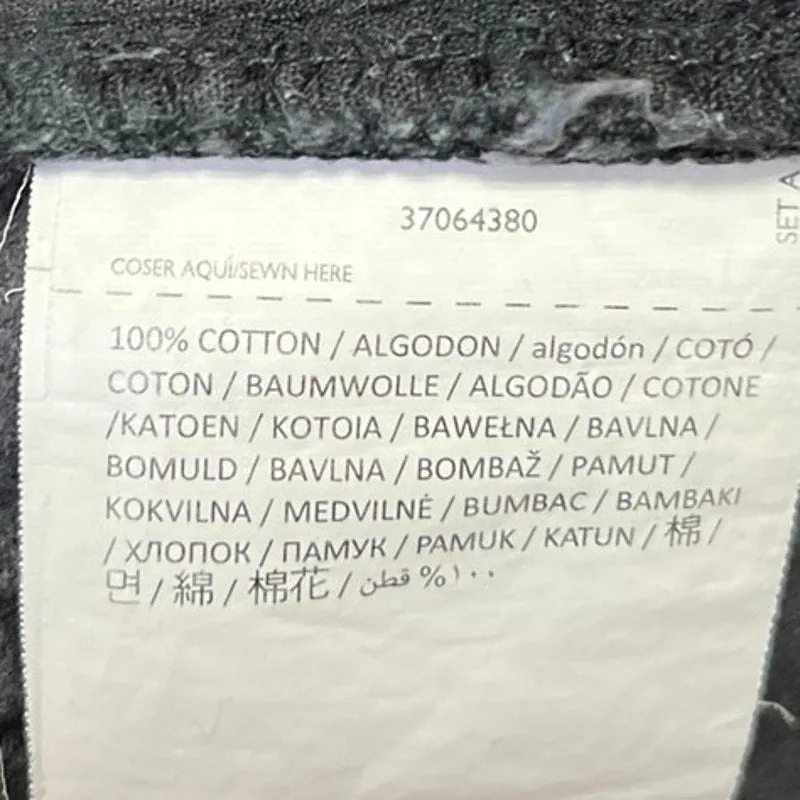 37064380
SET A
COSER AQUÍ/SEWN HERE
100% COTTON / ALGODON / algodón / COTÓ /
COTON / BAUMWOLLE / ALGODÃO / COTONE
/KATOEN / KOTOIA / BAWEŁNA / BAVLNA /
BOMULD / BAVLNA / BOMBAŽ / PAMUT /
KOKVILNA / MEDVILNĖ / BUMBAC / BAMBAKI
/ ХЛОПОК / ПАМУК / PAMUK / KATUN / 棉 /
면 / 綿 / 棉花 / قطن %١٠٠